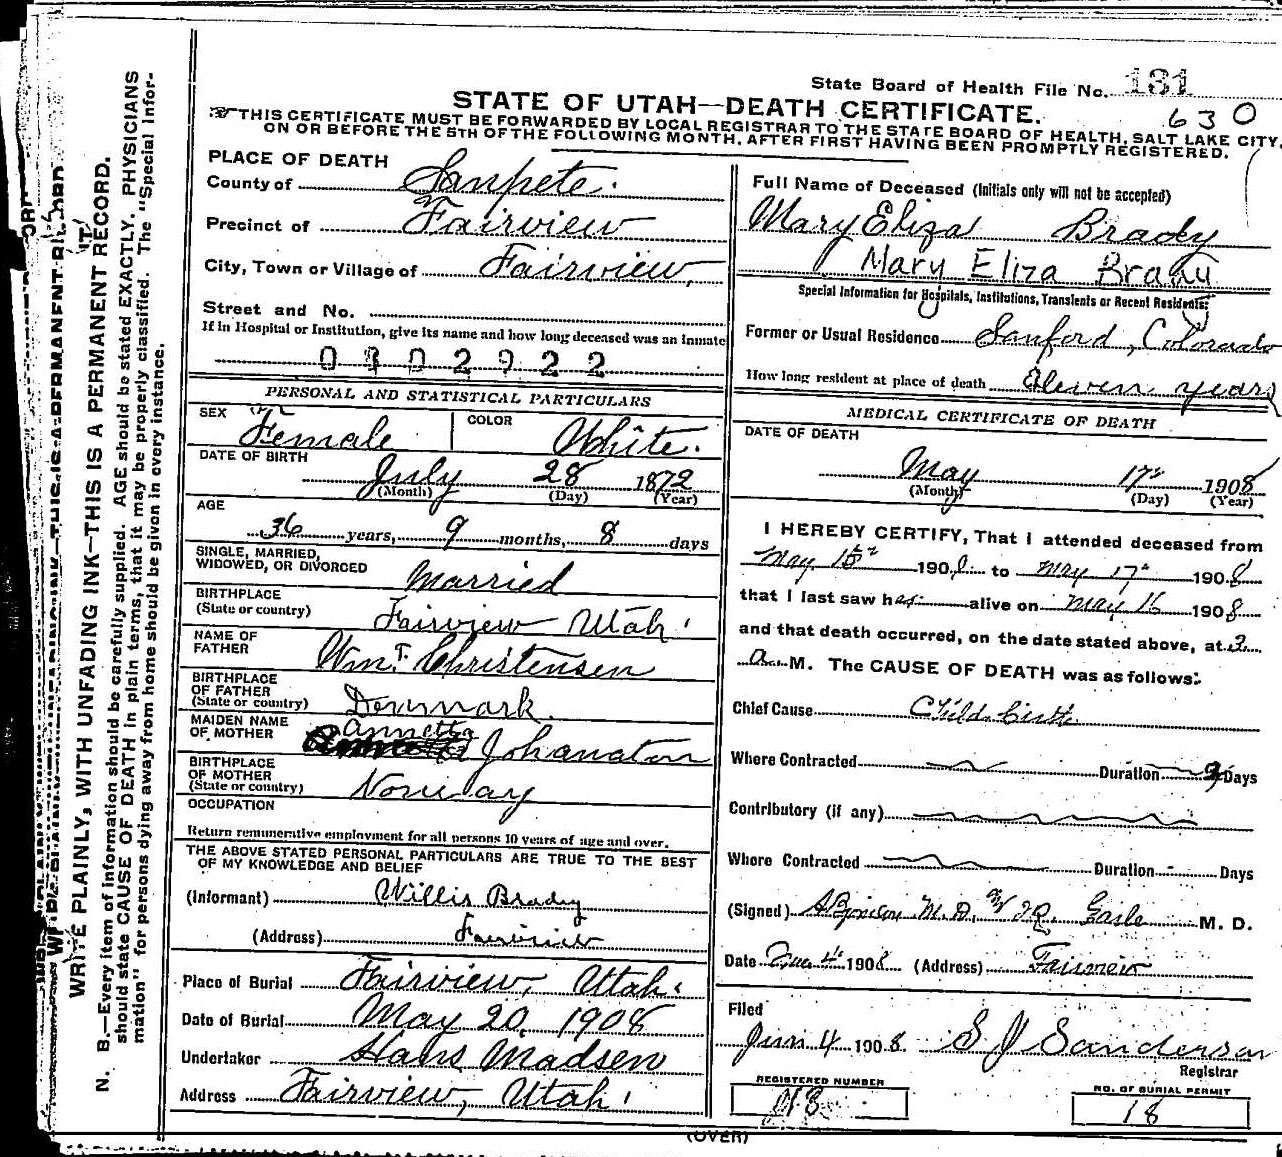 State Board of Health File No. 131
630
STATE OF UTAH—DEATH CERTIFICATE.
THIS CERTIFICATE MUST BE FORWARDED BY LOCAL REGISTRAR TO THE STATE BOARD OF HEALTH, SALT LAKE CITY,
ON OR BEFORE THE 5TH OF THE FOLLOWING MONTH, AFTER FIRST HAVING BEEN PROMPTLY REGISTERED.
WRITE PLAINLY, WITH UNFADING INK—THIS IS A PERMANENT RECORD.
N. B.—Every item of information should be carefully supplied. AGE should be stated EXACTLY. PHYSICIANS
should state CAUSE OF DEATH in plain terms, that it may be properly classified. The "Special Infor-
mation" for persons dying away from home should be given in every instance.
PLACE OF DEATH
County of Sanpete.
Precinct of Fairview
City, Town or Village of Fairview,
Street and No.
If in Hospital or Institution, give its name and how long deceased was an Inmate
0302922
PERSONAL AND STATISTICAL PARTICULARS
SEX Female COLOR White.
DATE OF BIRTH
July 28 1872
(Month) (Day) (Year)
AGE
36 years, 9 months, 8 days
SINGLE, MARRIED,
WIDOWED, OR DIVORCED Married
BIRTHPLACE
(State or country) Fairview Utah
NAME OF
FATHER Wm. F. Christensen
BIRTHPLACE
OF FATHER
(State or country) Denmark.
MAIDEN NAME
OF MOTHER Annetta
BIRTHPLACE
OF MOTHER
(State or country) Norway
OCCUPATION
Return remunerative employment for all persons 10 years of age and over.
THE ABOVE STATED PERSONAL PARTICULARS ARE TRUE TO THE BEST
OF MY KNOWLEDGE AND BELIEF
(Informant) Willis Brady
(Address) Fairview
Place of Burial Fairview, Utah.
Date of Burial May 20, 1908
Undertaker Hans Madsen
Address Fairview, Utah
Full Name of Deceased (Initials only will not be accepted)
Mary Eliza Brady
Mary Eliza Brady
Special Information for Hospitals, Institutions, Transients or Recent Residents:
Former or Usual Residence Sanford, Colorado
How long resident at place of death Eleven years
MEDICAL CERTIFICATE OF DEATH
DATE OF DEATH
May 17 1908
(Month) (Day) (Year)
I HEREBY CERTIFY, That I attended deceased from
May 15 1908 to May 17 1908
that I last saw her alive on May 16 1908
and that death occurred, on the date stated above, at 2
a. M. The CAUSE OF DEATH was as follows:
Chief Cause Child birth
Where Contracted Duration Days
Contributory (if any)
Where Contracted Duration Days
(Signed) M. D. M. D.
Date 4 1908 (Address) Fairview
Filed
Jun 4 1908 S J Sanderson
Registrar
REGISTERED NUMBER
18
NO. OF BURIAL PERMIT
18
(OVER)